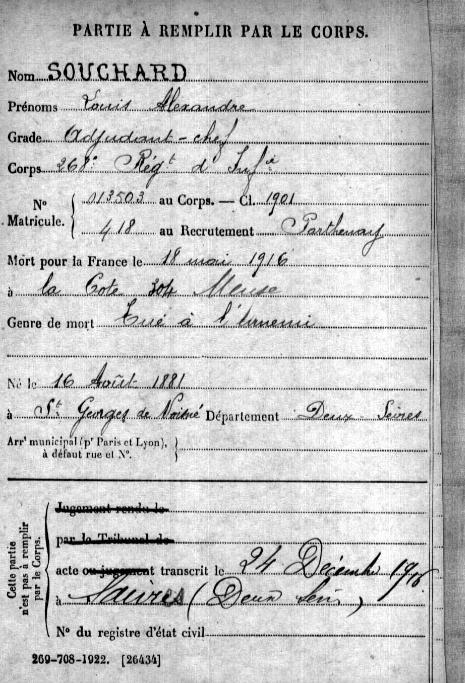 PARTIE À REMPLIR PAR LE CORPS.
Nom SOUCHARD
Prénoms Louis Alexandre
Grade Adjudant-chef
Corps 268e Régt d'Infie
No Matricule. 013503 au Corps. — Cl. 1901
418 au Recrutement Parthenay
Mort pour la France le 18 mai 1916
à la Cote 304 Meuse
Genre de mort Tué à l'ennemi
Né le 16 Août 1881
à St Georges de Noisné Département Deux Sèvres
Arrt municipal (pr Paris et Lyon),
à défaut rue et No.
Cette partie n'est pas à remplir par le Corps.
Jugement rendu le
par le Tribunal de
acte ou jugement transcrit le 24 Décembre
à Saivres (Deux Sèvres)
No du registre d'état civil
269-708-1922. [26434]